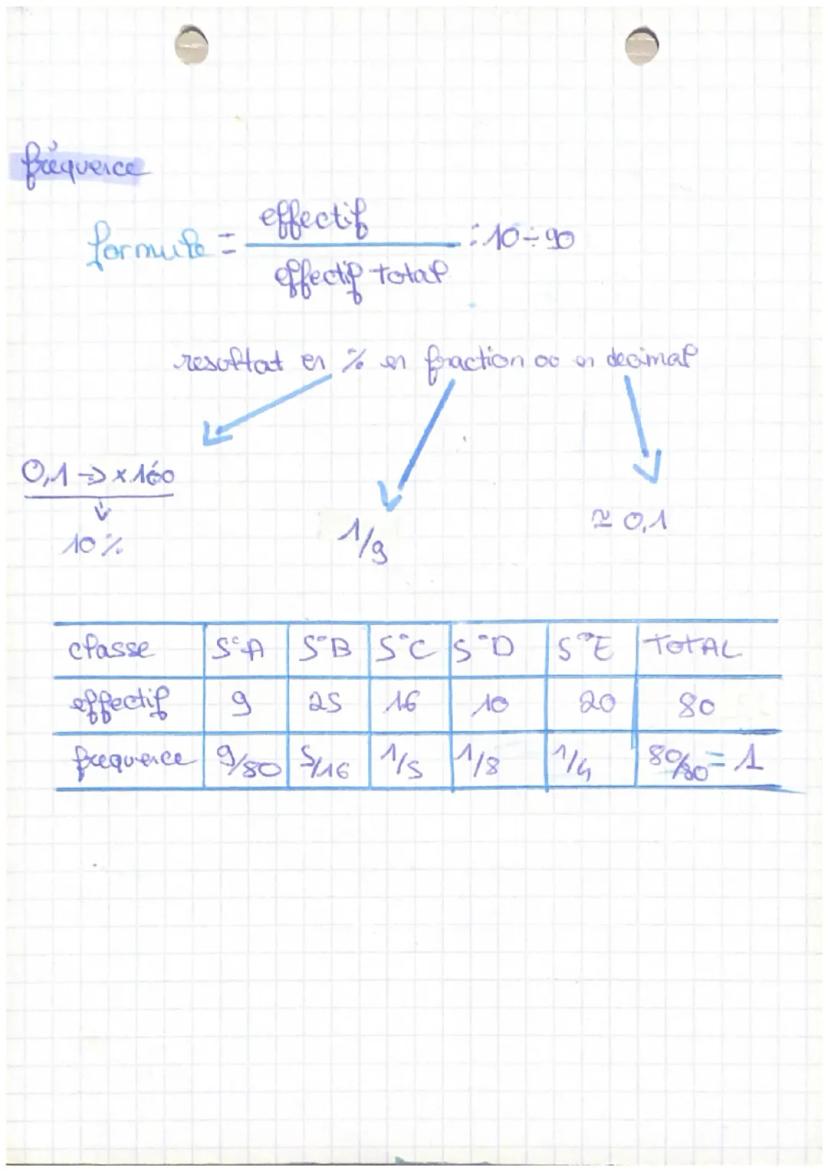 fréquence
formule = effectif / effectif total : 10 ÷ 90
resultat en % en fraction ou en decimal
0,1 → x 100
10 %
1/9
≃ 0,1
classe 5°A 5°B 5°C 5°D 5°E TOTAL
effectif 9 25 16 10 20 80
frequence 9/80 5/16 1/5 1/8 1/4 80/80 = 1